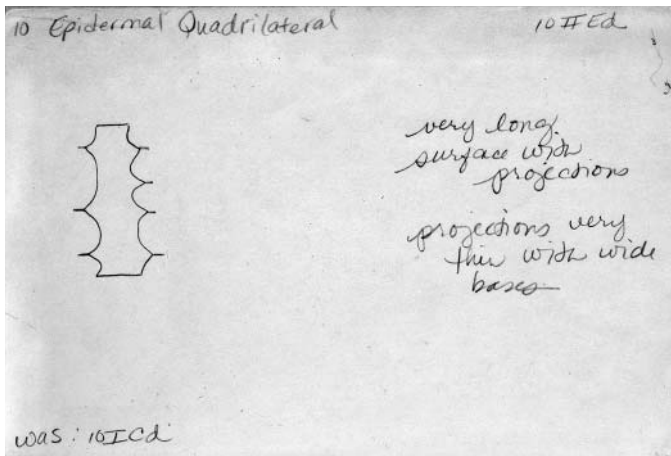 10 Epidermal Quadrilateral 10IIEd
very long
surface with
projections
projections very
thin with wide
bases
was: 10ICd